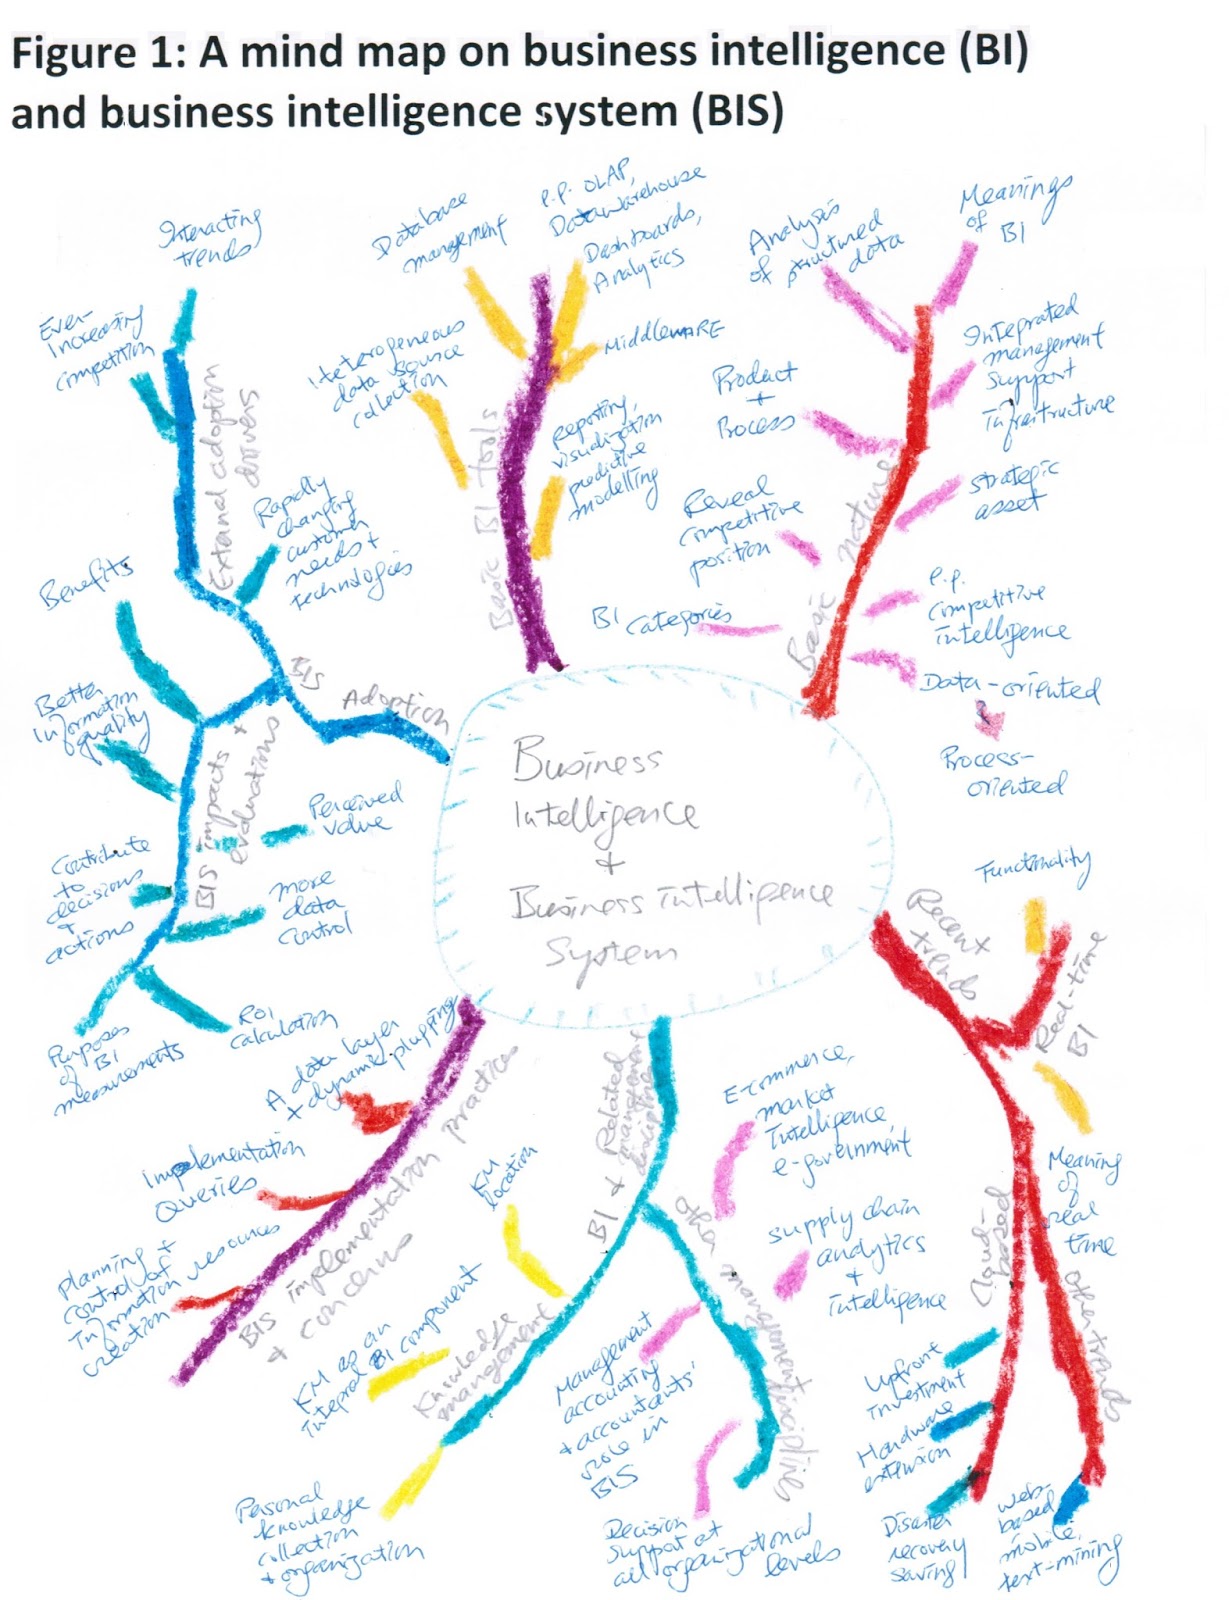 Figure 1: A mind map on business intelligence (BI)
and business intelligence system (BIS)
Business
Intelligence
+
Business intelligence
System
Interacting
trends
Ever-
increasing
competition
External adoption
drivers
Rapidly
changing
customer
needs +
technologies
Benefits
BIS
Adoption
Better
information
quality
BIS impacts +
evaluations
Perceived
value
Contribute
to
decisions
+
actions
more
data
control
ROI
calculation
Purposes
of BI
measurements
Database
management
e.g. OLAP,
Datawarehouse
Dashboards,
Analytics
Middleware
Heterogeneous
data source
collection
Basic BI tools
Reporting,
visualization
predictive
modelling
Analysis
of structured
data
Meanings
of
BI
Integrated
management
support
infrastructure
Product
+
Process
Basic nature
Strategic
asset
Reveal
competitive
position
e.g.
competitive
intelligence
BI categories
Data-oriented
Process-
oriented
Functionality
Recent
trends
Real-time
BI
Meaning
of
real
time
Cloud-
based
Other trends
Upfront
investment
Hardware
extension
Disaster
recovery
saving
web-
based,
mobile,
text-mining
A data layer
+ dynamic plugging
Implementation
Queries
Planning +
control of
Information resources
creation
BIS implementation practices
+ concerns
BI + Related
management
disciplines
KM
location
KM as an
integral BI component
Knowledge
management
Personal
knowledge
collection
+ organization
Other management disciplines
E-commerce,
market
Intelligence,
e-government
supply chain
analytics
+
intelligence
Management
accounting
+ accountants'
role in
BIS
Decision
support at
all organizational
levels